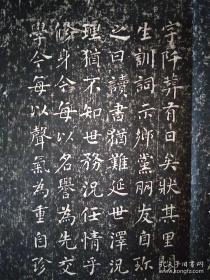 字阡葬有日矣狀其里
生訓詞示鄉黨朋友自珎
之曰讀書猶難延世澤况
理猶不知世務况任情乎
修身合每以名譽為先交
學合每以聲氣為重自珍